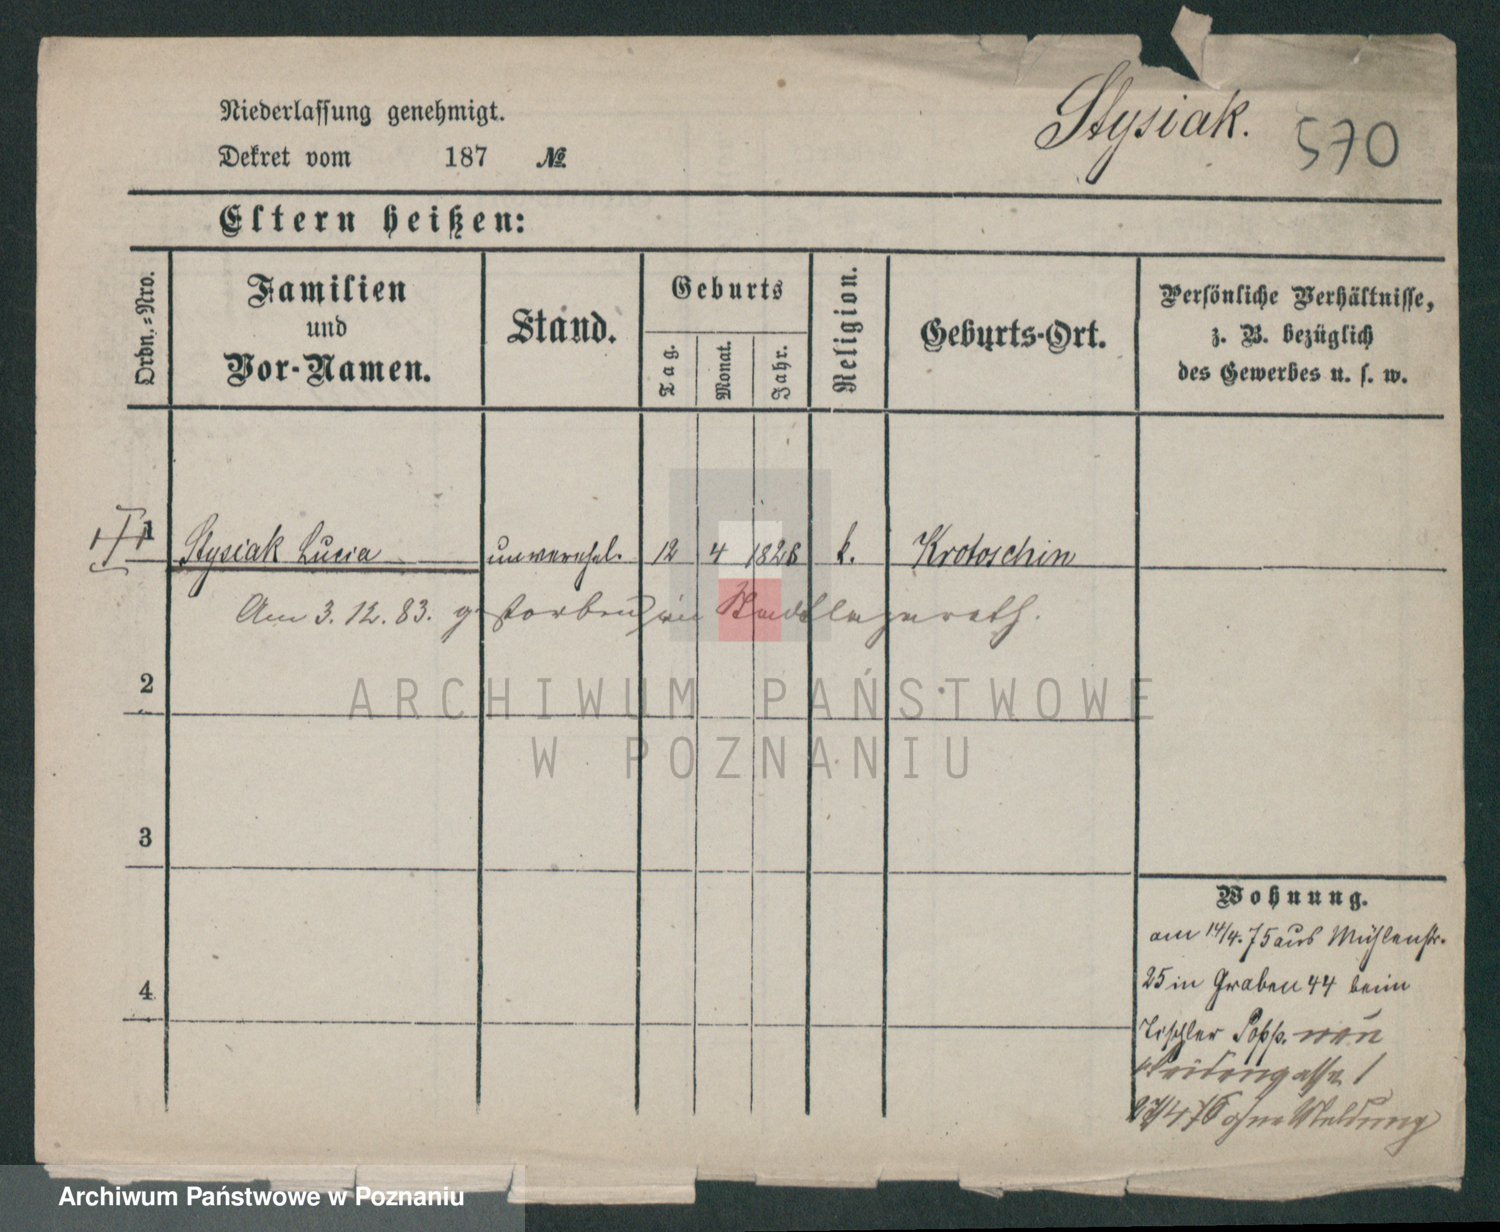 Niederlassung genehmigt.
Dekret vom 187 №
Stysiak.
570
Eltern heißen:
Ordn.-Nro.
Familien
und
Vor-Namen.
Stand.
Geburts
Tag.
Monat.
Jahr.
Religion.
Geburts-Ort.
Persönliche Verhältnisse,
z. B. bezüglich
des Gewerbes u. s. w.
1 Stysiak Lucia unverehel. 12 4 1826 k. Krotoschin
Am 3. 12. 83. gestorben im Stadtlazareth.
2
3
4
Wohnung.
am 14/4. 75 aus Mühlenstr.
25 in Graben 44 beim
Tischler Popp. neu
gasse 1
27/4 76 ohne Meldung
ARCHIWUM PAŃSTWOWE
W POZNANIU
Archiwum Państwowe w Poznaniu